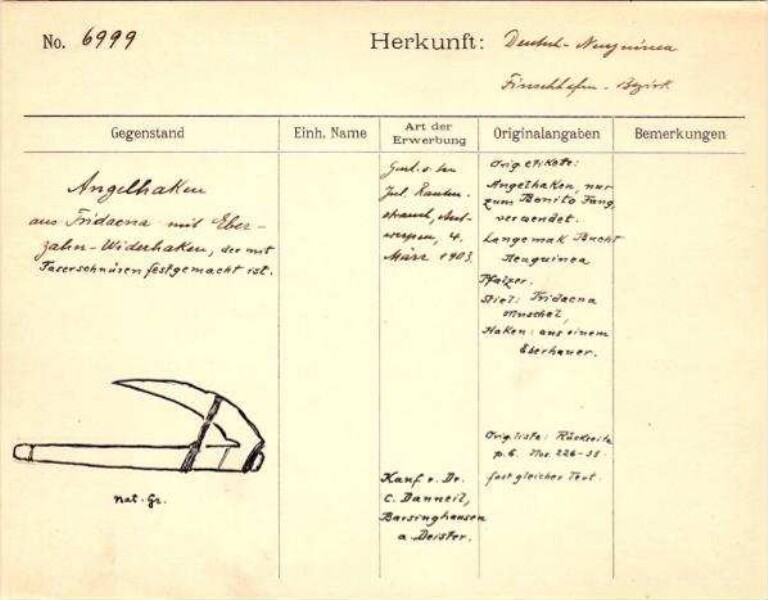 No. 6999
Herkunft: Deutsch-Neuguinea
Finschhafen-Bezirk
Gegenstand
Einh. Name
Art der
Erwerbung
Originalangaben
Bemerkungen
Angelhaken
aus Tridacna mit Eber-
zahn-Widerhaken, der mit
Faserschnüren festgemacht ist.
nat. Gr.
Jul. Rauten-
strauch, Ant-
werpen, 4.
März 1903.
Kauf v. Dr.
C. Danneil,
Barsinghausen
a Deister.
Orig etikete:
Angelhaken, nur
zum Bonito Fang
verwendet.
Langemak Bucht
Neuguinea
Pfalzer.
Stiel: Tridacna
Muschel,
Haken: aus einem
Eberhauer.
Orig. liste: Rückseite
p. 6. Nos. 226-
fast gleicher Text.